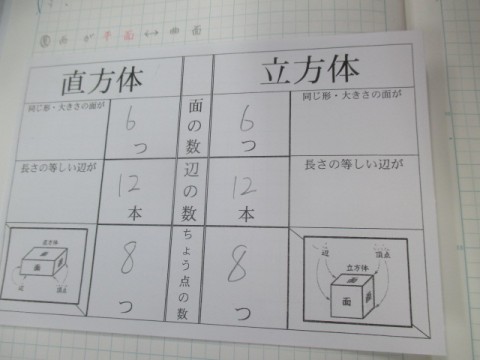 面が平面↔曲面
直方体 立方体
同じ形・大きさの面が 6つ 面の数 6つ 同じ形・大きさの面が
長さの等しい辺が 12本 辺の数 12本 長さの等しい辺が
8つ ちょう点の数 8つ
直方体
面
辺 頂点
辺 頂点
立方体
面